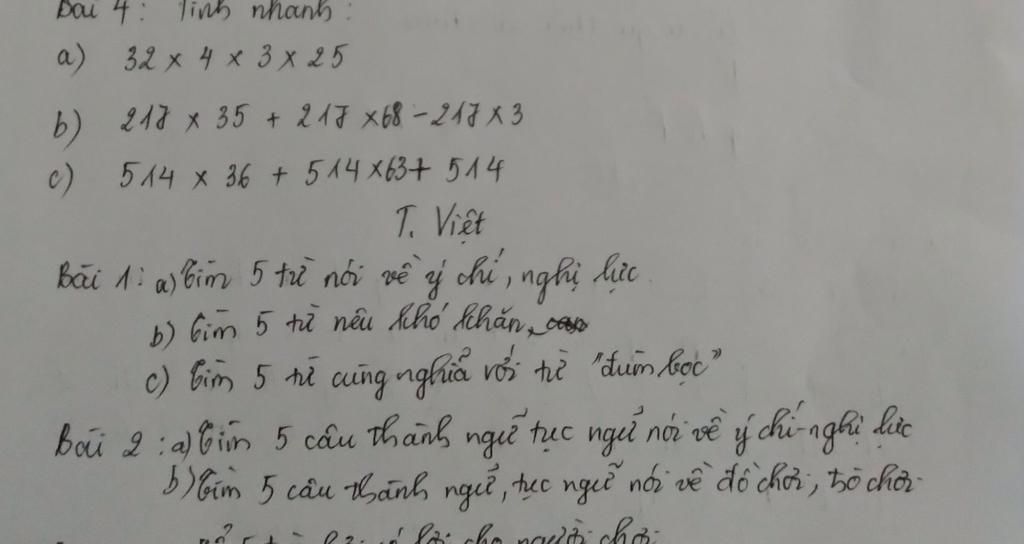 Bài 4: Tính nhanh:
a) 32 x 4 x 3 x 25
b) 217 x 35 + 217 x 68 - 217 x 3
c) 514 x 36 + 514 x 63 + 514
T. Việt
Bài 1: a) Tìm 5 từ nói về ý chí, nghị lực
b) Tìm 5 từ nêu khó khăn,
c) Tìm 5 từ cùng nghĩa với từ "đùm bọc"
Bài 2: a) Tìm 5 câu thành ngữ tục ngữ nói về ý chí - nghị lực
b) Tìm 5 câu thành ngữ, tục ngữ nói về đồ chơi, trò chơi.
cho người chơi